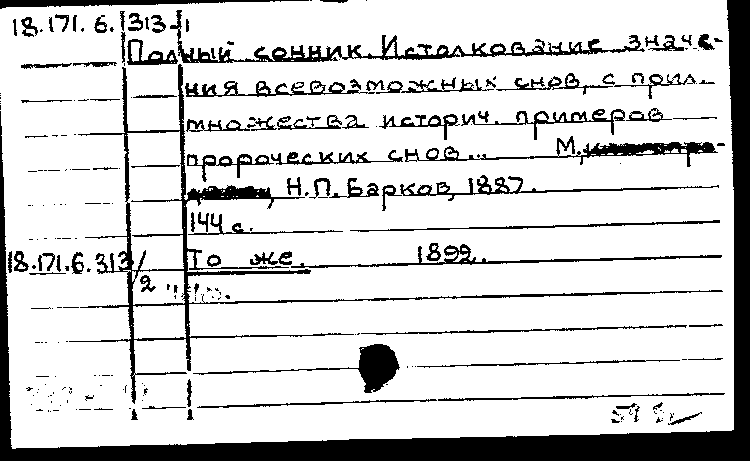 18.171.6.313-1
Полный сонник. Истолкование значе-
ния всевозможных снов, с прил.
множества историч. примеров
пророческих снов... М.,
Н.П. Барков, 1887.
144 с.
18.171.6.313/2 То же. 1892.